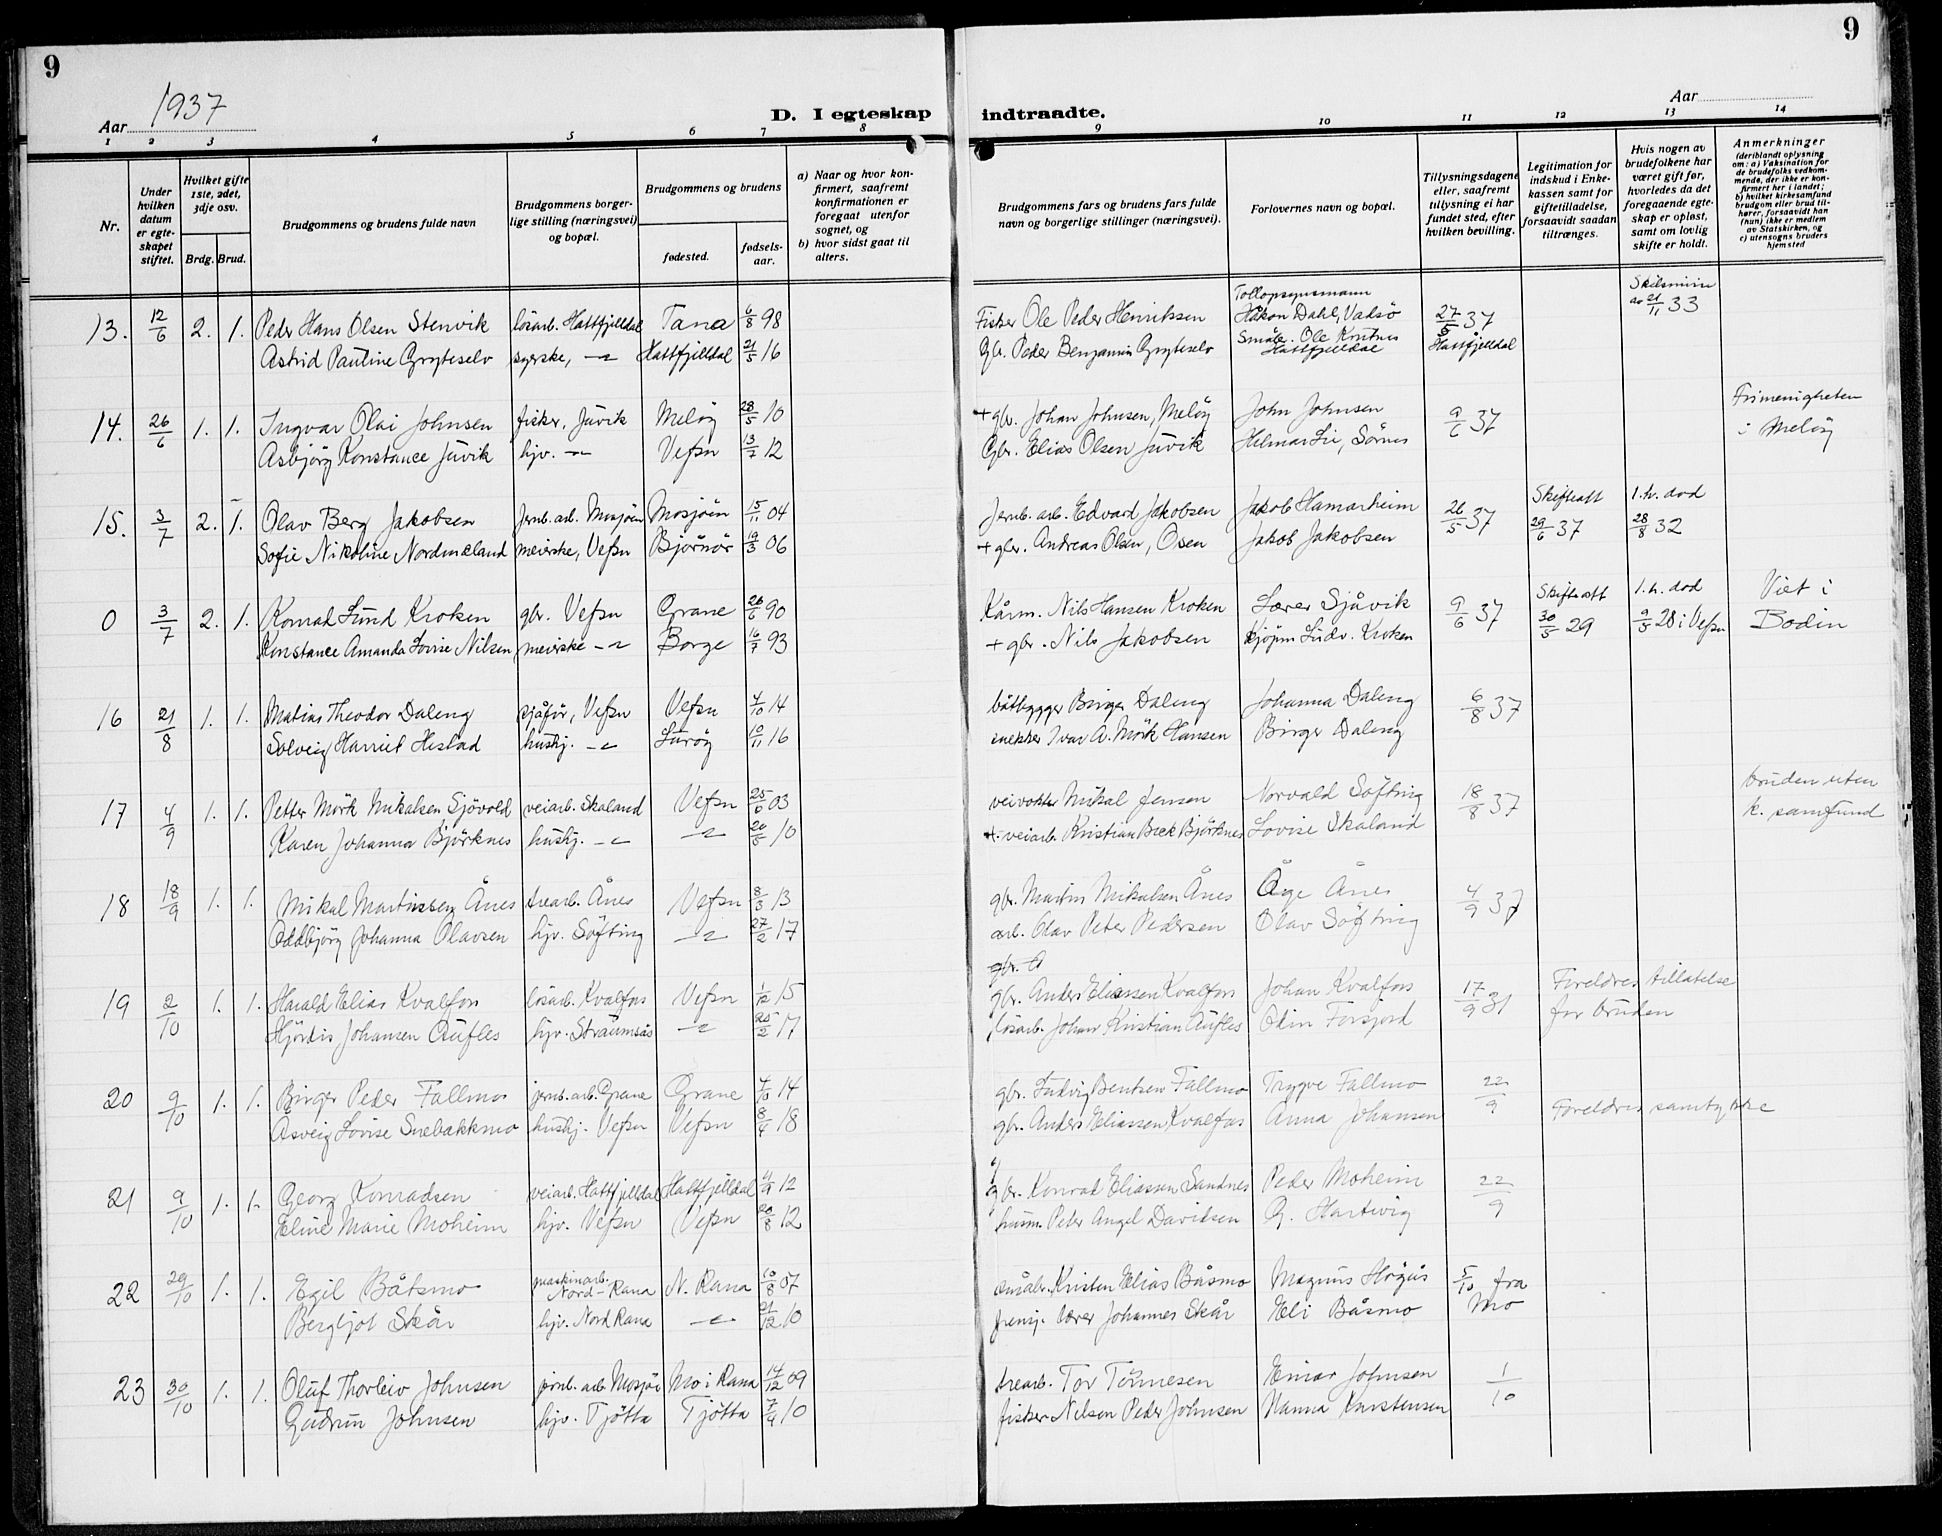 9
9
Aar 1937
D. I egteskap indtraadte.
Aar
1 2 3 4 5 6 7 8 9 10 11 12 13 14
Nr.
Under hvilken datum er egteskapet stiftet.
Hvilket gifte 1ste, 2det, 3dje osv.
Brdg. Brud.
Brudgommens og brudens fulde navn
Brudgommens borgerlige stilling (næringsvei) og bopæl.
Brudgommens og brudens
fødested.
fødselsaar.
a) Naar og hvor konfirmert, saafremt konfirmationen er foregaat utenfor sognet, og
b) hvor sidst gaat til alters.
Brudgommens fars og brudens fars fulde navn og borgerlige stillinger (næringsvei).
Forlovernes navn og bopæl.
Tillysningsdagene eller, saafremt tillysning ei har fundet sted, efter hvilken bevilling.
Legitimation for indskud i Enkekassen samt for giftetilladelse, forsaavidt saadan tiltrænges.
Hvis nogen av brudefolkene har været gift før, hvorledes da det foregaaende egteskap er opløst, samt om lovlig skifte er holdt.
Anmerkninger (deriblandt oplysning om: a) Vaksination for de brudefolks vedkommende, der ikke er konfirmert her i landet; b) hvilket kirkesamfund brudgom eller brud tilhører, forsaavidt han (hun) ikke er medlem av Statskirken, og c) utensogns bruders hjemsted
13. 12/6 2. 1. Peder Hans Olsen Stenvik løsarb. Hattfjelldal Tana 6/8 98 Fisker Ole Peder Henriksen Tollopsynsmann Håkon Dahl, Vadsö 27/5 37 Skilsmisse av 21/11 33
Astrid Pauline Gryteselv syrske, -"- Hattfjelldal 21/5 16 Gbr. Peder Benjamin Gryteselv Småbr. Ole Knutnes Hattfjelldal Hattfjelldal
14. 26/6 1. 1. Ingvar Olai Johnsen fisker, Juvik Melöy 28/5 10 + gbr. Johan Johnsen, Melöy John Johnsen 9/6 37 Frimenigheten
Asbjörg Konstance Juvik hjv. -"- Vefsn 13/7 12 Gbr. Elias Olsen Juvik Helmar Lie, Sörnes i Melöy
15. 3/7 2. 1. Olav Berg Jakobsen Jernb. arb. Mosjöen Mosjöen 15/11 04 Jernb. arb. Edvard Jakobsen Jakob Hamarheim 26/5 37 Skifteatt 29/6 37 1. h. död 28/8 32
Sofie Nikoline Nordmæland meierske, Vefsn Björnör 19/3 06 + gbr. Andreas Olsen, Osen Jakob Jakobsen
0 3/7 2. 1. Konrad Lund Kroken gbr. Vefsn Grane 26/6 90 Kårm. Nils Hansen Kroken Lærer Sjåvik 9/6 37 Skifteatt 30/5 29 1. h. död 9/5 28 i Vefsn Viet i
Konstance Amanda Lovise Nilsen meierske -"- Borge 16/7 93 + gbr. Nils Jakobsen Ludv. Kroken Bodin
16 21/8 1. 1. Matias Theodor Daleng sjåför, Vefsn Vefsn 4/10 14 båtbygger Birger Daleng Johanna Daleng 6/8 37
Solveig Harriet Hestad hushj. -"- Luröy 10/11 16 snekker Ivar A. Mörk Hansen Birger Daleng
17 4/9 1. 1. Petter Mörk Mikalsen Sjövold veiarb. Skaland Vefsn 25/6 03 veivokter Mikal Jensen Norvald Söfting 18/8 37 bruden uten
Karen Johanna Björknes hushj. -"- -"- 20/5 10 + veiarb. Kristian Bæk Björknes Lovise Skaland k. samfund
18 18/9 1. 1. Mikal Martinsen Ånes trearb. Ånes Vefsn 8/3 13 gbr. Martin Mikalsen Ånes Åge Ånes 4/9 37
Oddbjörg Johanna Olavsen hjv. Söfting -"- 27/2 17 arb. Olav Peter Pedersen Olav Söfting
gbr. A
19 2/10 1. 1. Harald Elias Kvalfors lösarb. Kvalfors Vefsn 1/12 15 gbr. Anders Eliassen Kvalfors Johan Kvalfors 17/9 31 Foreldres tillatelse
Hjördis Johansen Aufles hjv. Straumsås -"- 25/2 17 lösarb. Johan Kristian Aufles Odin Forsjord for bruden
20 9/10 1. 1. Birger Peder Fallmo jernb. arb. Grane Grane 4/10 14 gbr. Ludvig Bentsen Fallmo Trygve Fallmo 22/9
Åsveig Lovise Snebakkmo hushj. Vefsn Vefsn 8/4 18 gbr. Anders Eliassen Kvalfors Anna Johansen Foreldres samtykke
21 9/10 1. 1. Georg Konradsen veiarb. Hattfjelldal Hattfjelldal 4/9 12 gbr. Konrad Eliassen Sandnes Peder Moheim 22/9
Eline Marie Moheim hjv. Vefsn Vefsn 20/8 12 husm. Peter Angel Davidsen G. Hartvig
22 29/10 1. 1. Egil Båtsmo maskinarb. Nord-Rana N. Rana 10/8 07 småbr. Kristen Elias Båsmo Magnus Högås 5/10 fra
Bergljot Skår hjv. Nord Rana -"- 21/12 10 pensj. lærer Johannes Skår Eli Båsmo Mo
23 30/10 1. 1. Oluf Thorleiv Johnsen jernb. arb. Mosjöen Mo i Rana 14/12 09 trearb. Tor Tönnesen Einar Johnsen 1/10
Gudrun Johnsen hjv. Tjötta Tjötta 7/4 10 fisker Nilsen Peder Johnsen Hanna Knutsen